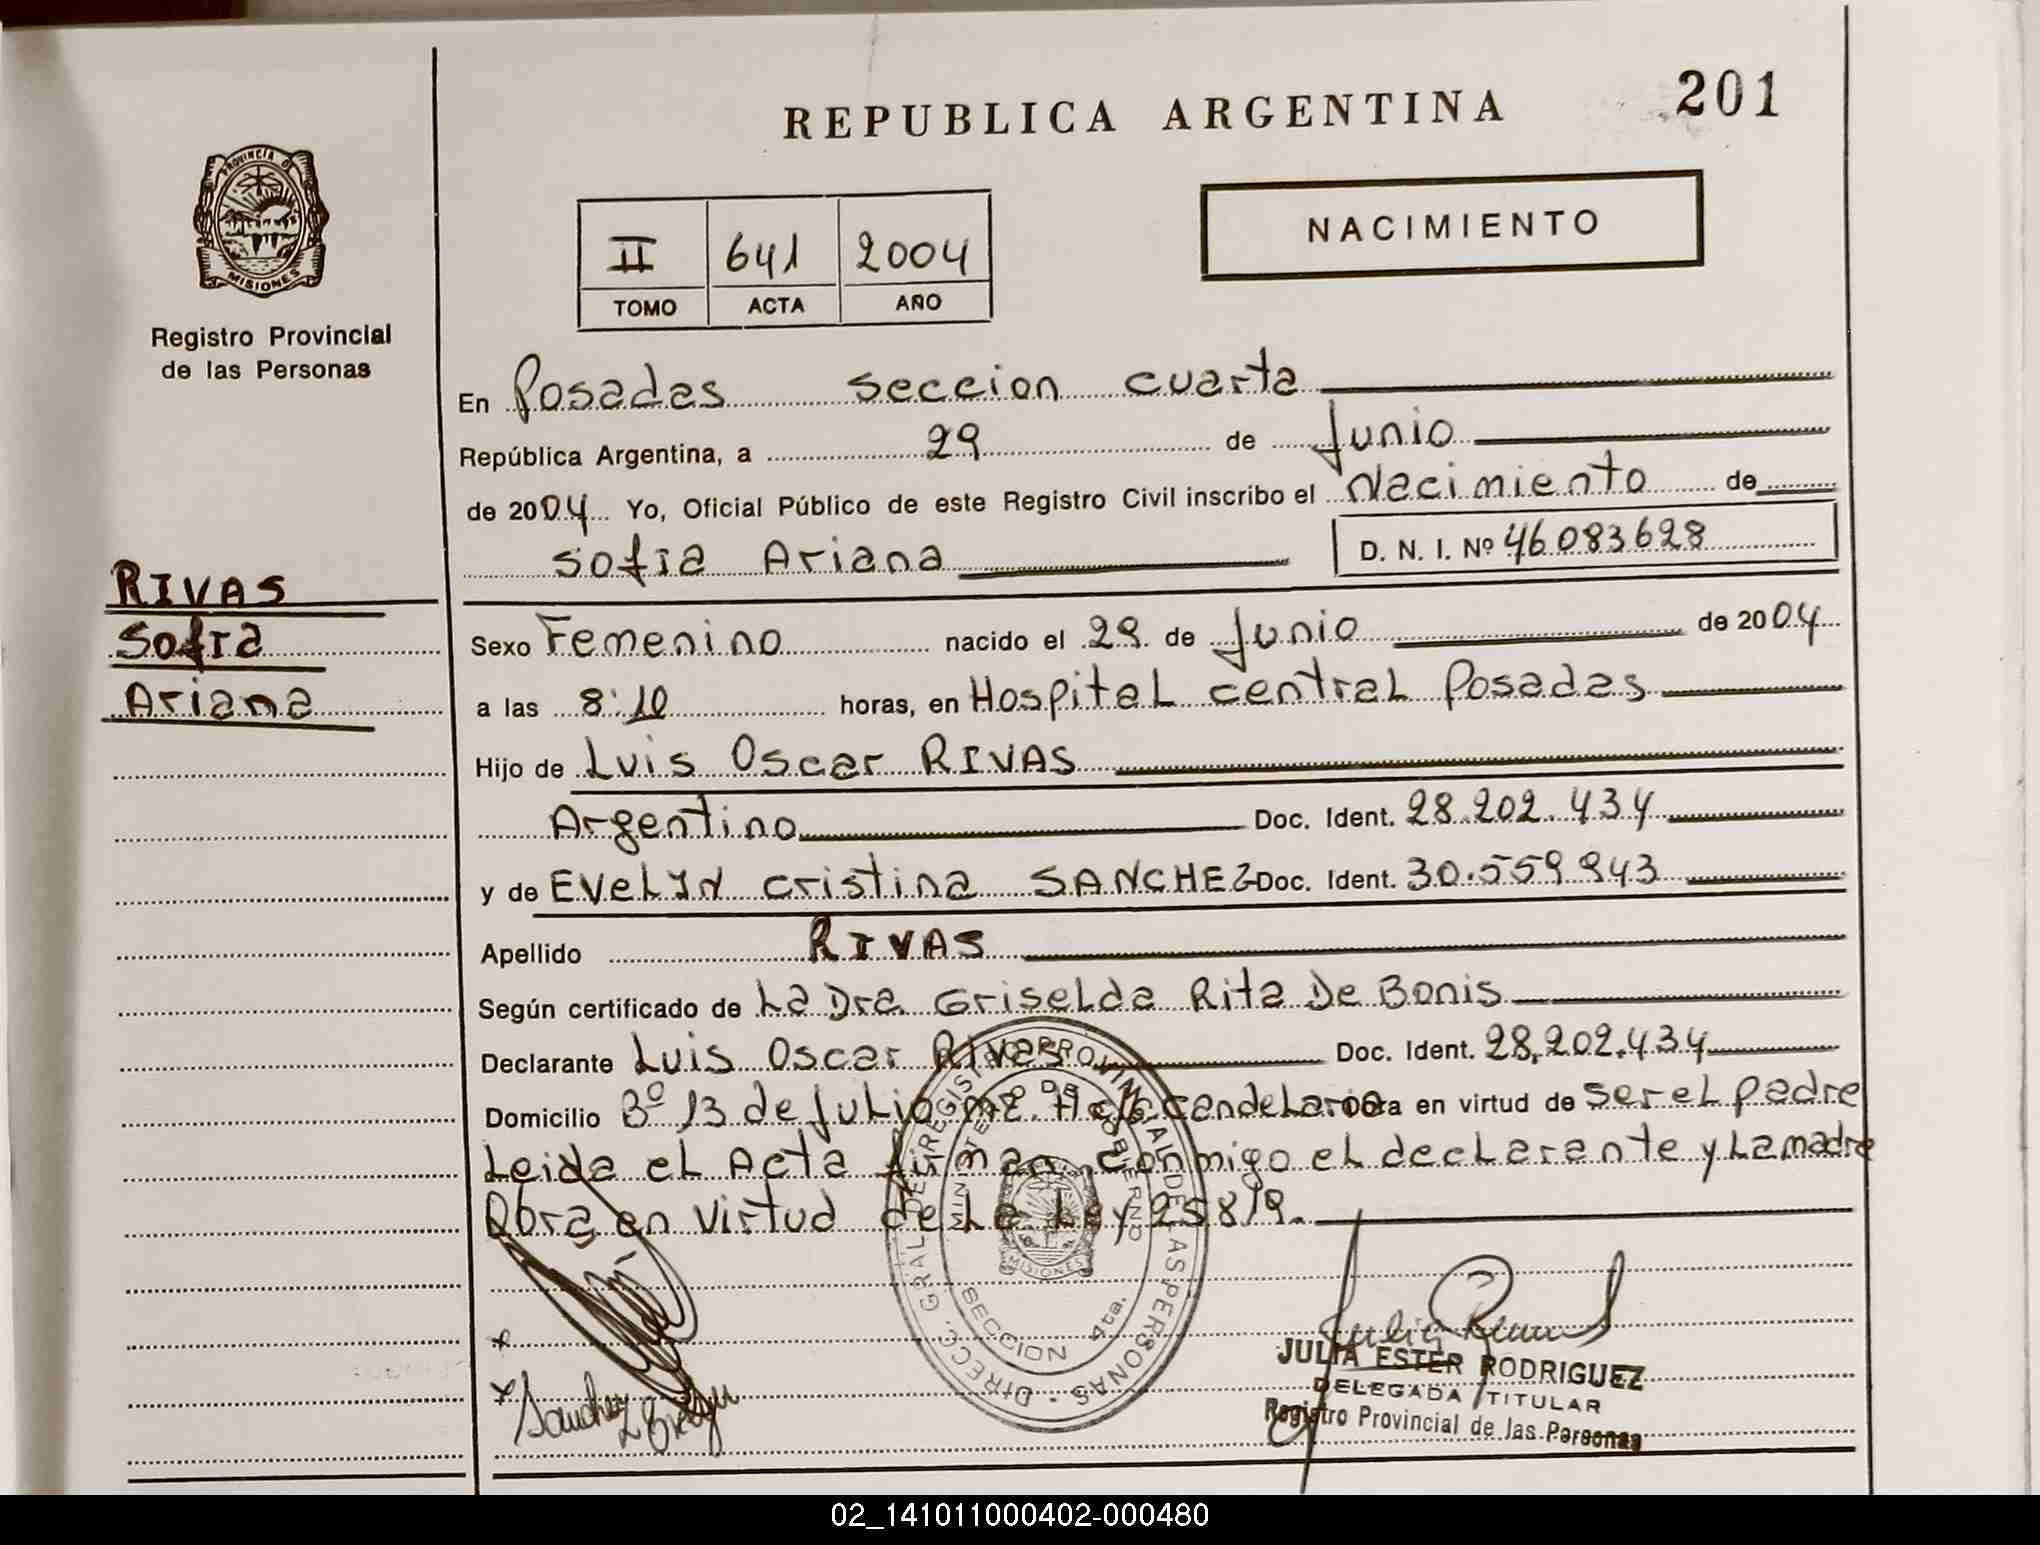 REPUBLICA ARGENTINA
201
PROVINCIA DE
MISIONES
Registro Provincial
de las Personas
NACIMIENTO
II 641 2004
TOMO ACTA AÑO
En Posadas seccion cuarta
República Argentina, a 29 de Junio
de 2004 Yo, Oficial Público de este Registro Civil inscribo el Nacimiento de
Sofia Ariana D. N. I. Nº 46083628
RIVAS
Sofia
Ariana
Sexo Femenino nacido el 29 de Junio de 2004
a las 8:10 horas, en Hospital central Posadas
Hijo de Luis Oscar RIVAS
Argentino Doc. Ident. 28.202.434
y de Evelyn cristina SANCHEZ Doc. Ident. 30.559943
Apellido RIVAS
Según certificado de La Dra Griselda Rita De Bonis
Declarante Luis Oscar Rivas Doc. Ident. 28.202.434
Domicilio Bº 13 de Julio candelaria obra en virtud de ser el padre
Leida el Acta firman conmigo el declarante y La madre
Obra en virtud de La Ley 25819.
DIRECC. GRAL. DEL REGISTRO PROVINCIAL DE LAS PERSONAS
MINISTERIO DE GOBIERNO
MISIONES
SECCION 4ta.
Sanchez Evelyn
JULIA ESTER RODRIGUEZ
DELEGADA TITULAR
Registro Provincial de las Personas
02_141011000402-000480